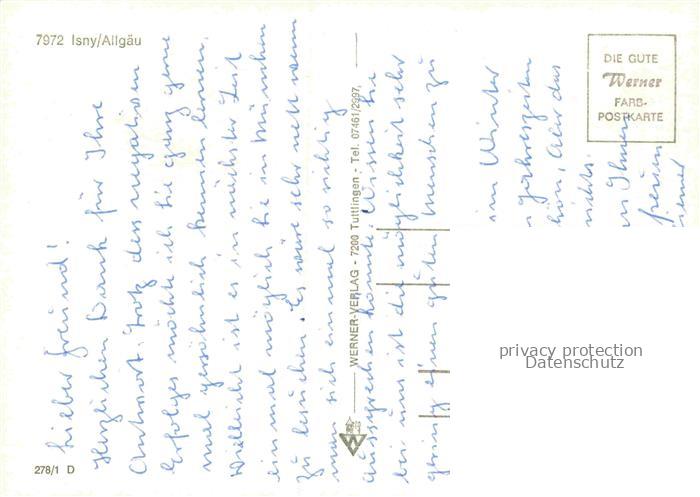 7972 Isny/Allgäu
DIE GUTE
Werner
FARB-
POSTKARTE
Lieber Freund!
Herzlichen Dank für Ihre
Antwort. Trotz dem negativen
Erfolges möchte ich Sie ganz gerne
mal persönlich kennen lernen.
Vielleicht ist es in nächster Zeit
einmal möglich Sie in München
zu besuchen. Es wäre sehr nett wenn
man sich einmal so richtig
aussprechen könnte. Wissen Sie
bei uns ist die möglichkeit sehr
gering einen guten Menschen zu
im Winter
Jahreszeiten
Aber das
nichts.
Ihnen
WERNER-VERLAG - 7200 Tuttlingen - Tel. 07461/2997
278/1 D
privacy protection
Datenschutz